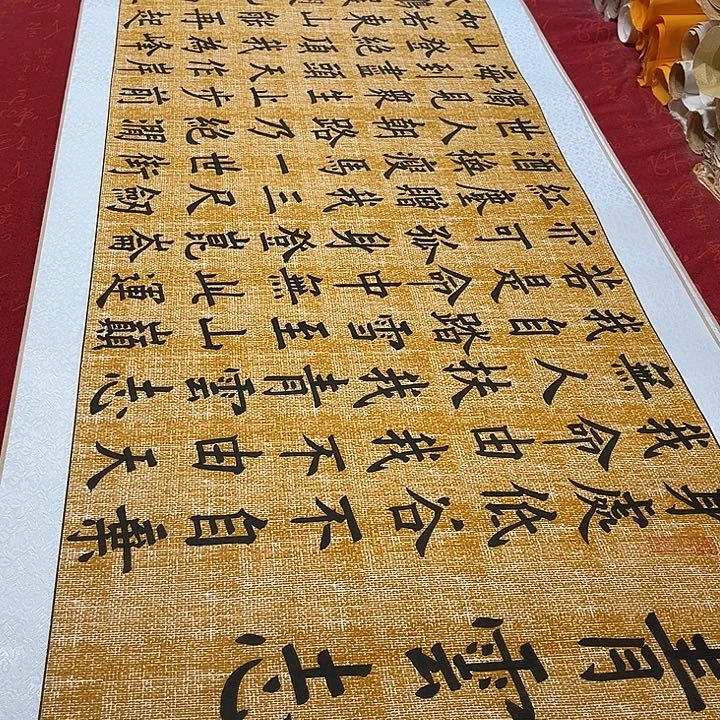 青雲志
身處低谷不自棄
我命由我不由天
無人扶我青雲志
我自踏雪至山巔
若是命中無此運
亦可孤身登崑崙
紅塵贈我三尺劍
酒換瘦馬一世街
世人朝路乃絕
獨見眾生止步前
海到盡頭天作岸
山登絕頂我為峰
如若東山能再起